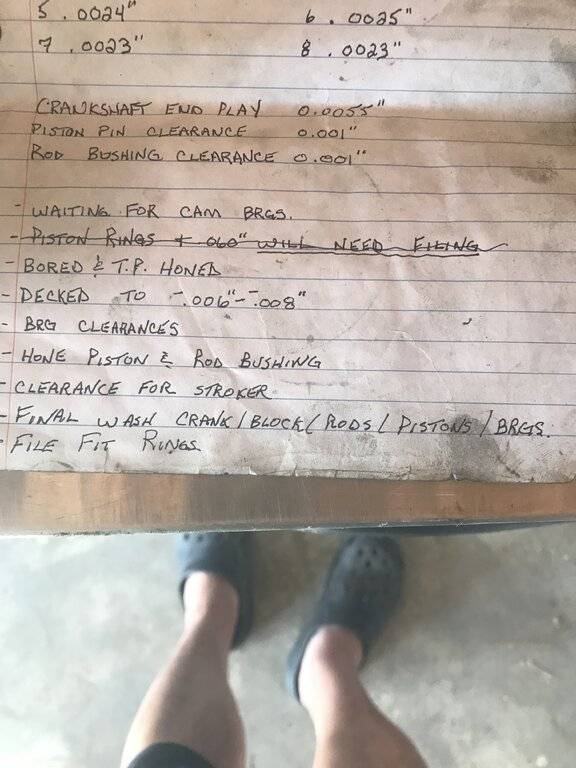 5 .0024" 6 .0025"
7 .0023" 8 .0023"
CRANKSHAFT END PLAY 0.0055"
PISTON PIN CLEARANCE 0.001"
ROD BUSHING CLEARANCE 0.001"
- WAITING FOR CAM BRGS.
- PISTON RINGS + .060" WILL NEED FILING
- BORED & T.P. HONED
- DECKED TO -.006"- -.008"
- BRG CLEARANCES
- HONE PISTON & ROD BUSHING
- CLEARANCE FOR STROKER
- FINAL WASH CRANK/BLOCK/RODS/PISTONS/BRGS.
- FILE FIT RINGS